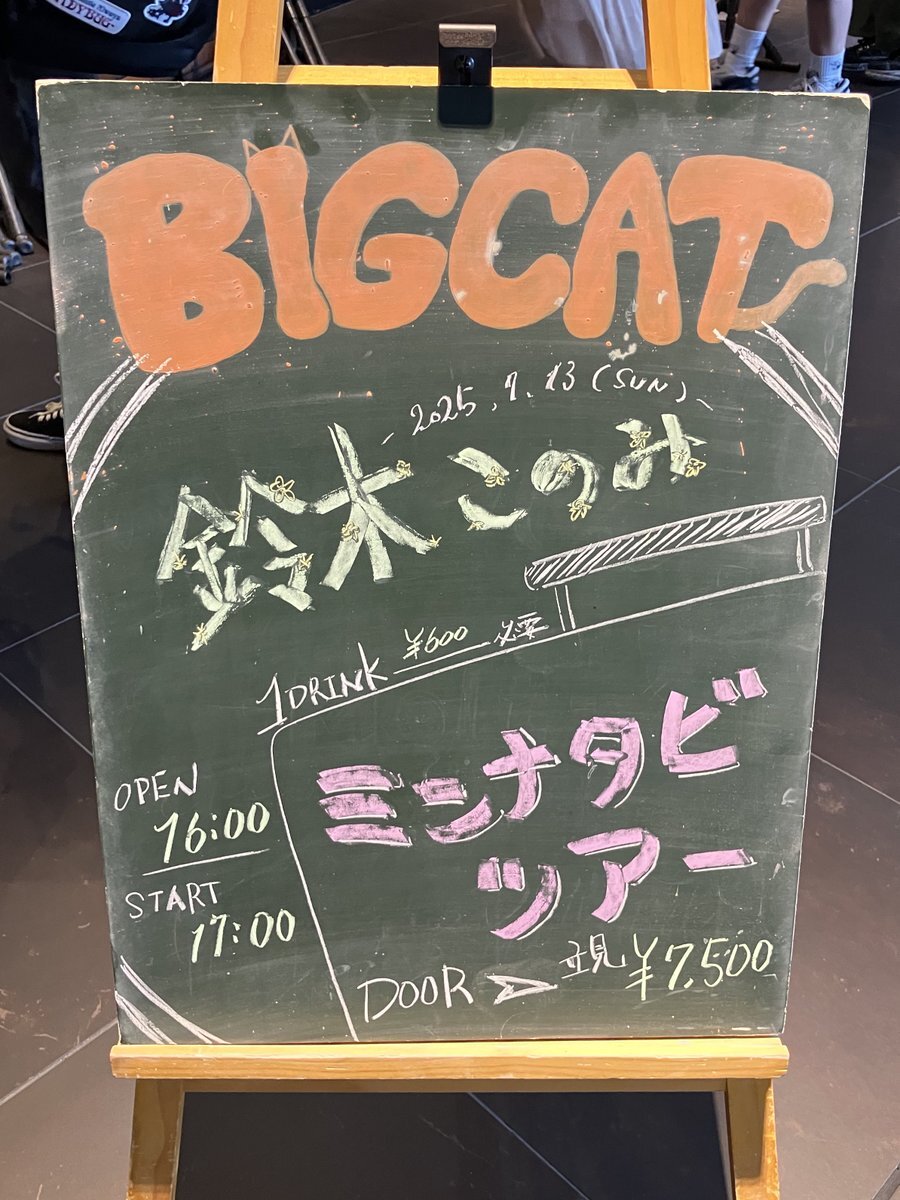 LADYBUG
BIGCAT
- 2025.7.13 (SUN) -
鈴木このみ
1DRINK ¥600 必要
OPEN
16:00
START
17:00
ミンナタビ
ツアー
DOOR ➢ 立見 ¥7,500